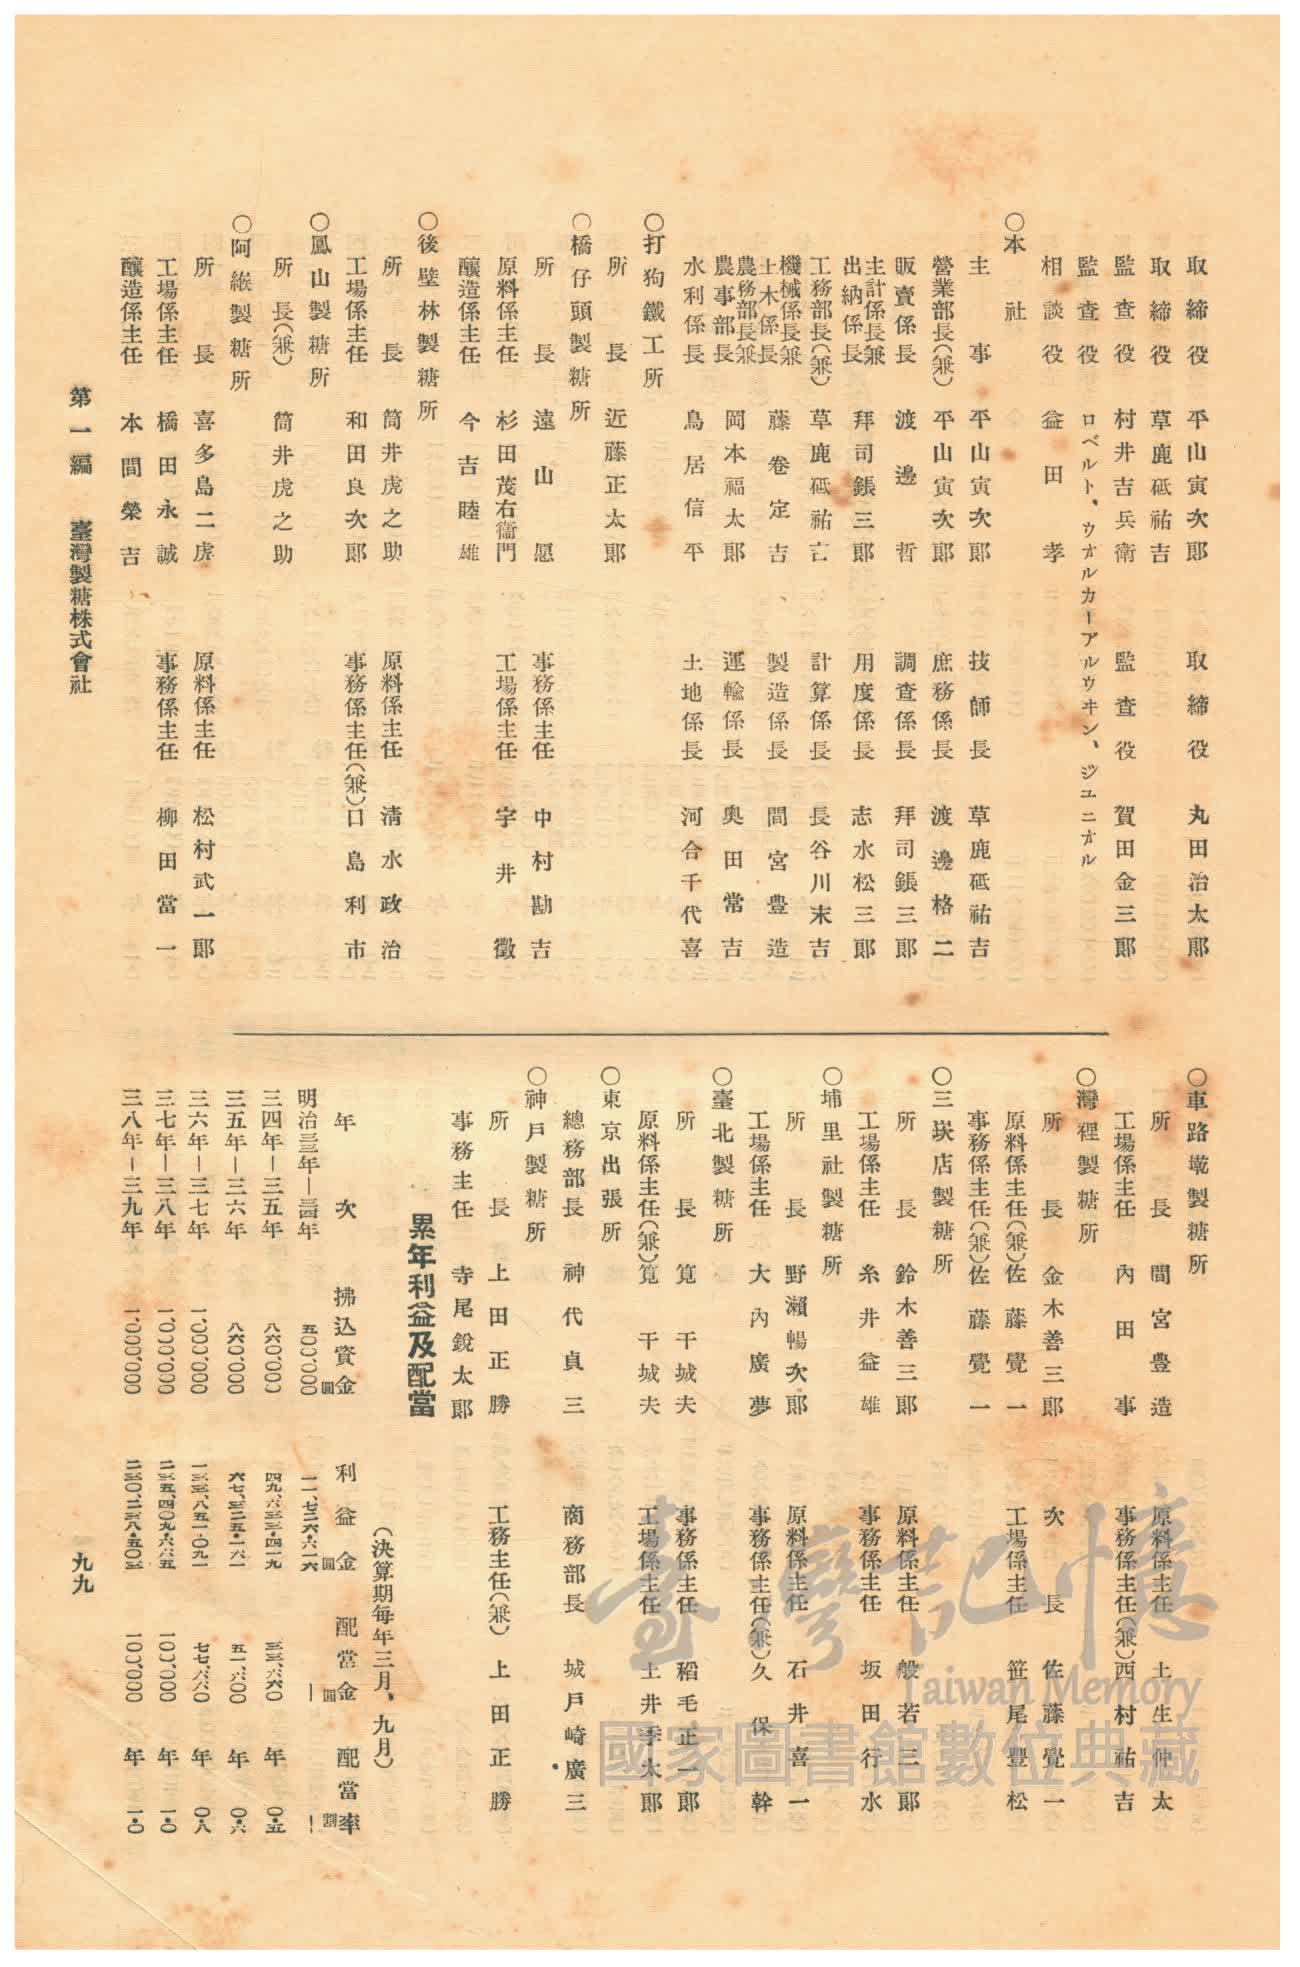 取締役　平山寅次郎　取締役　丸田治太郎
取締役　草鹿砥祐吉
監査役　村井吉兵衛　監査役　賀田金三郎
監査役　ロベルト、ウオルカーアルウヰン、ジユニオル
相談役　益田孝
〇本社
主事　平山寅次郎　技師長　草鹿砥祐吉
營業部長(兼)　平山寅次郎　庶務係長　渡邊格二
販賣係長　渡邊哲　調査係長　拜司銕三郎
主計係長兼出納係長　拜司銕三郎　用度係長　志水松三郎
工務部長(兼)　草鹿砥祐吉　計算係長　長谷川末吉
機械係長兼土木係長　藤卷定吉　製造係長　間宮豊造
農務部長兼農事部長　岡本福太郎　運輸係長　奥田常吉
水利係長　鳥居信平　土地係長　河合千代喜
〇打狗鐵工所
所長　近藤正太郎
〇橋仔頭製糖所
所長　遠山愿　事務係主任　中村勘吉
原料係主任　杉田茂右衞門　工場係主任　宇井徵
釀造係主任　今吉睦雄
〇後壁林製糖所
所長　筒井虎之助　原料係主任　淸水政治
工場係主任　和田良次郎　事務係主任(兼)　口島利市
〇鳳山製糖所
所長(兼)　筒井虎之助
〇阿緱製糖所
所長　喜多島二虎　原料係主任　松村武一郎
工場係主任　橋田永誠　事務係主任　柳田當一
釀造係主任　本間榮吉
〇車路墘製糖所
所長　間宮豊造　原料係主任　土生仲太
工場係主任　內田事　事務係主任(兼)　西村祐吉
〇灣裡製糖所
所長　金木善三郎　次長　佐藤覺一
原料係主任(兼)　佐藤覺一　工場係主任　笹尾豊松
事務係主任(兼)　佐藤覺一
〇三崁店製糖所
所長　鈴木善三郎　原料係主任　般若三郎
工場係主任　糸井益雄　事務係主任　坂田行水
〇埔里社製糖所
所長　野瀨暢次郎　原料係主任　石井喜一
工場係主任　大內廣夢　事務係主任(兼)　久保幹
〇臺北製糖所
所長　筧干城夫　事務係主任　稻毛正一郎
原料係主任(兼)　筧干城夫　工場係主任　土井季太郎
〇東京出張所
總務部長　神代貞三　商務部長　城戶崎廣三
〇神戶製糖所
所長　上田正勝　工務主任(兼)　上田正勝
事務主任　寺尾銳太郎
累年利益及配當
(決算期每年三月、九月)
年次　拂込資金　利益金　配當金　配當率
明治三三年―三四年　五〇〇、〇〇〇圓　一一、七二六・六一六圓　―圓　―割
三四年―三五年　八六〇、〇〇〇　四九、六三三・四一九　三三、六六〇　年〇・五
三五年―三六年　八六〇、〇〇〇　六七、三二五・一六一　五一、六〇〇　年〇・六
三六年―三七年　一、〇〇〇、〇〇〇　一三三、八五一・〇九一　七七、六六〇　年〇・八
三七年―三八年　一、〇〇〇、〇〇〇　二三五、四〇九・六六五　一〇〇、〇〇〇　年一・〇
三八年―三九年　一、〇〇〇、〇〇〇　二三〇、二三八・五〇三　一〇〇、〇〇〇　年一・〇
第一編　臺灣製糖株式會社
九九
臺灣記憶
Taiwan Memory
國家圖書館數位典藏